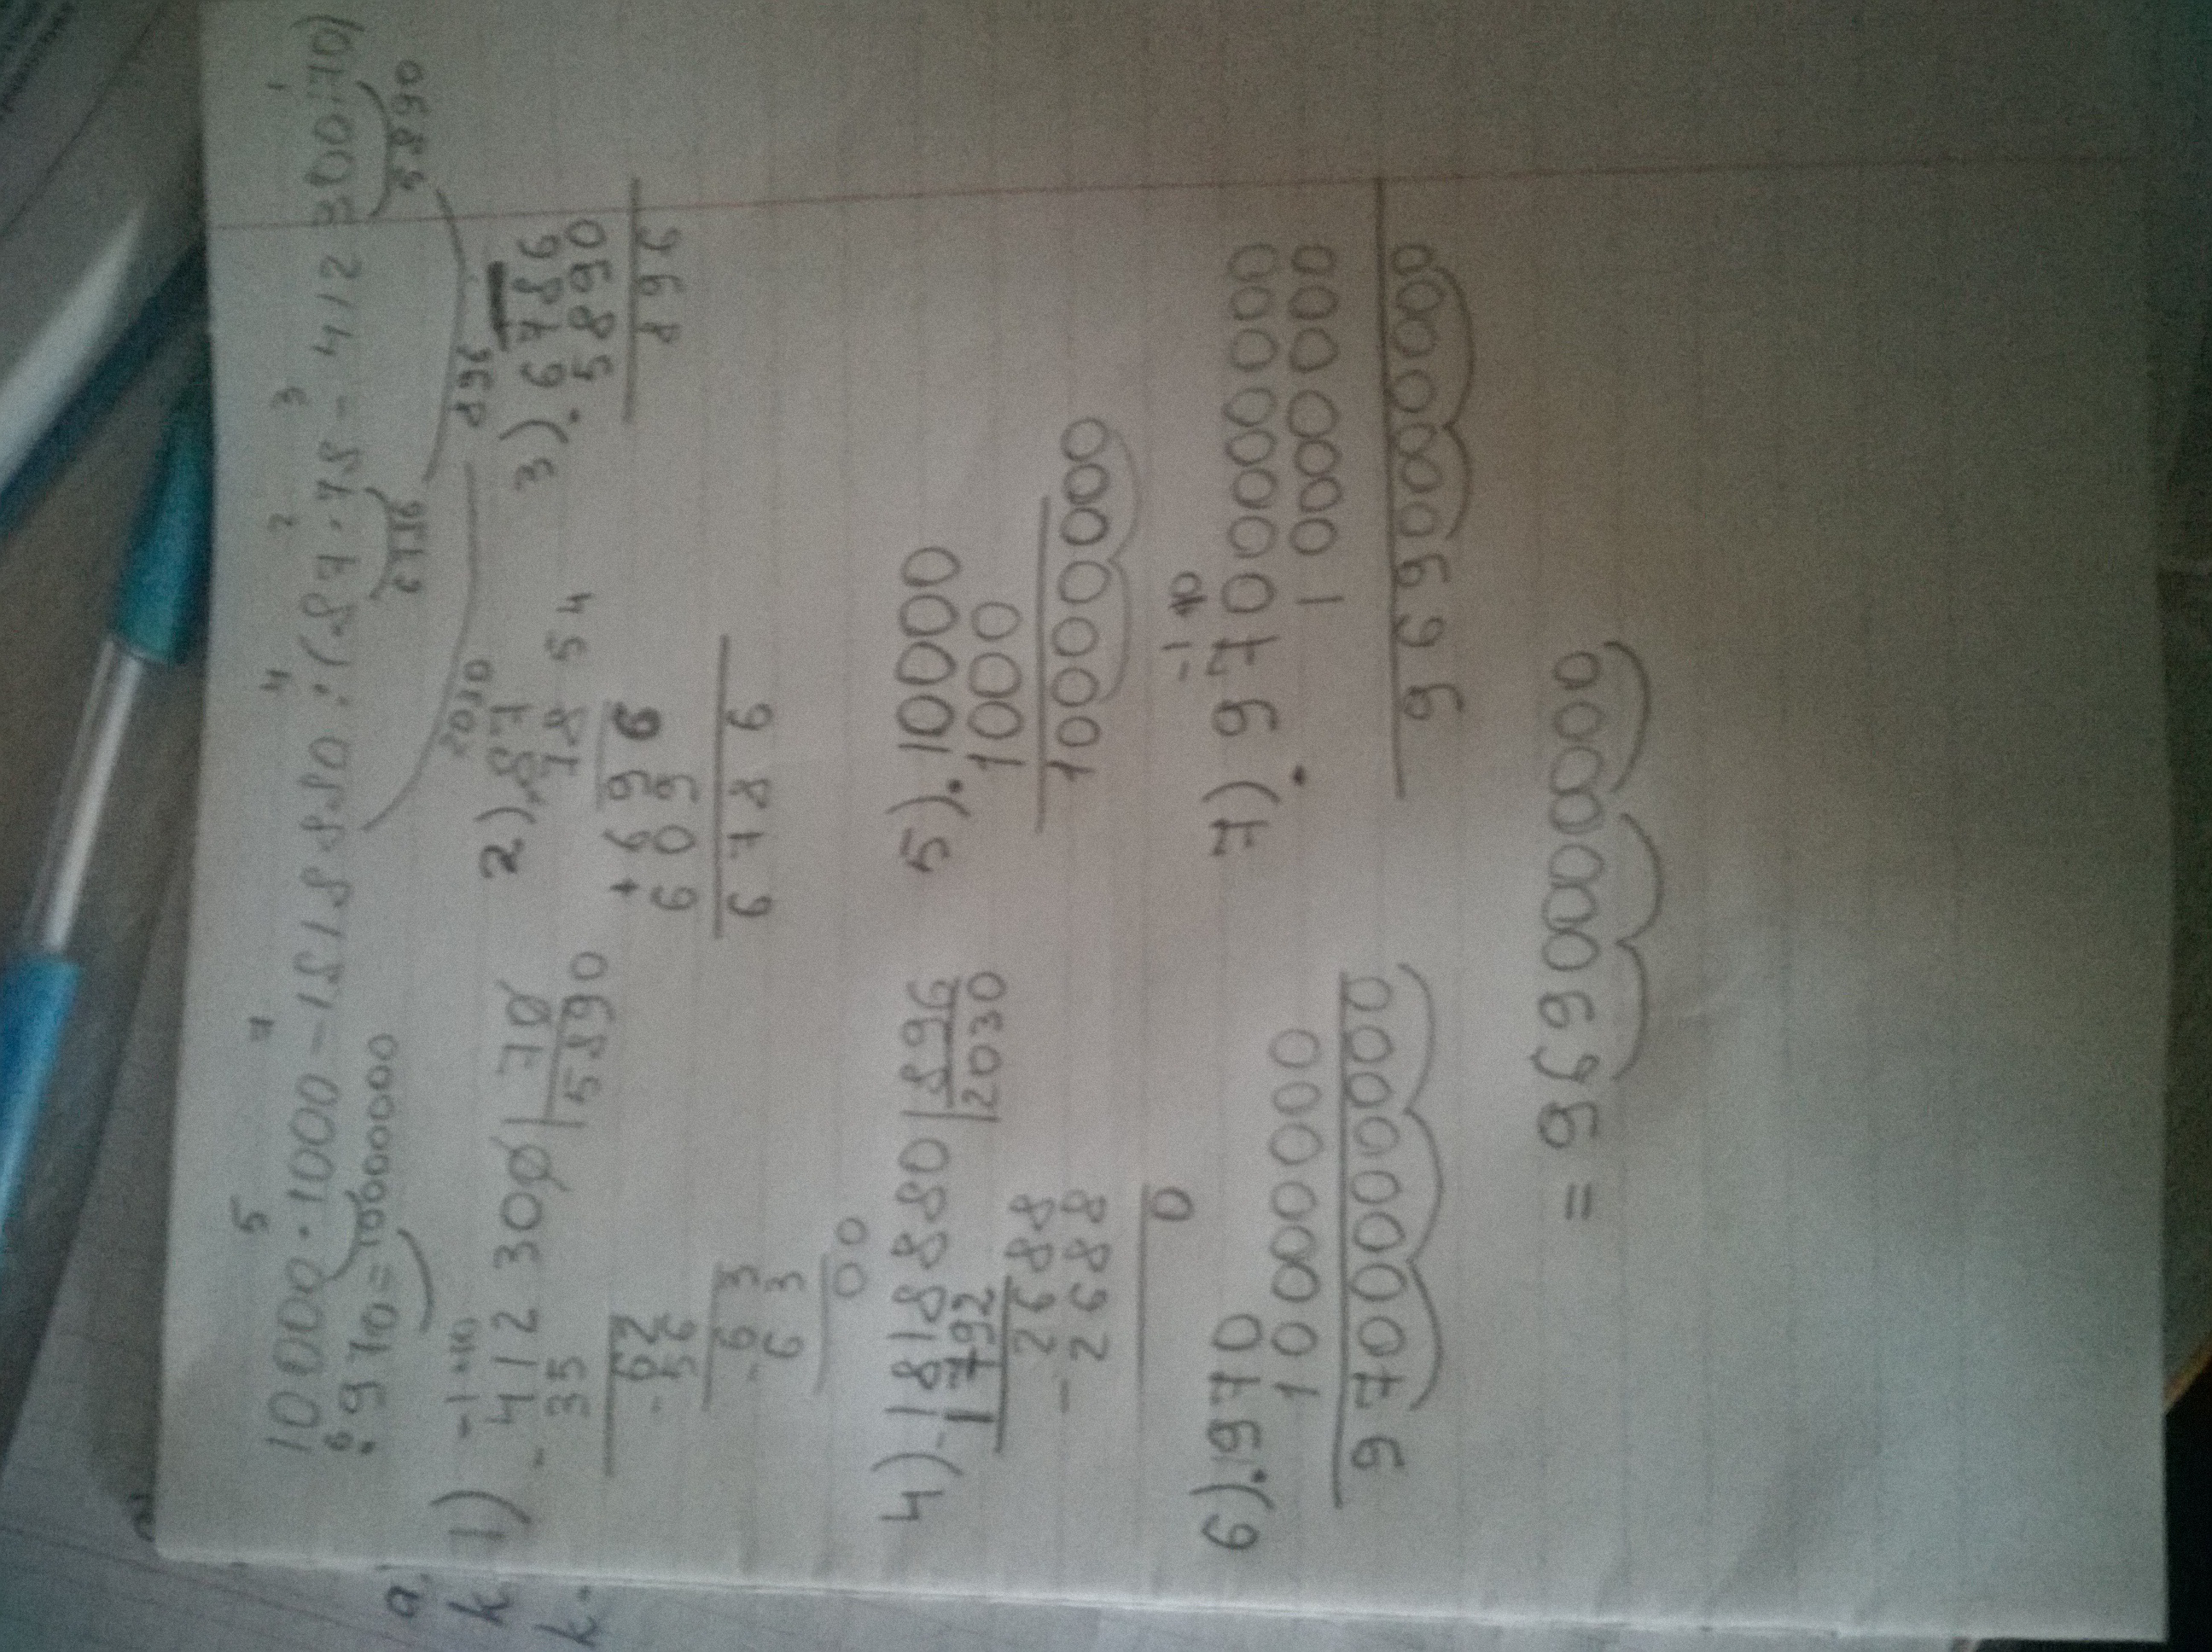 5 7 4 2 3 1
10000·1000-1818880:(87·78-412300:70)
6
·970=10000000 6786 5890
896
2030
1) -1+10
-412300|70
35 |5890
62
-56
-63
63
00
2) ×87
78 54
+696
609
6786
3) -6786
5890
896
4) -1818880|896
1792 |2030
2688
-2688
0
5) ·10000
1000
10000000
6) ·970
10000000
9700000000
7) -1 10
9700000000
10000000
9690000000
=9690000000
a)
k
k.